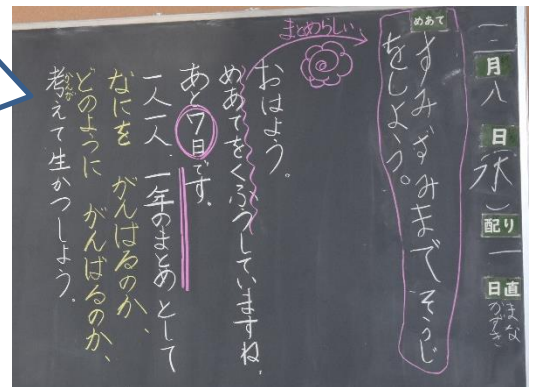 三月八日(水)配り一日直まなかずき
めあて
すみずみまでそうじ
をしよう。
まとめらしい
おはよう。
めあてをくふうしていますね。
あと7日です。
一人一人、一年のまとめとして
なにを がんばるのか、
どのように がんばるのか、
考えて生かつしよう。
かんが